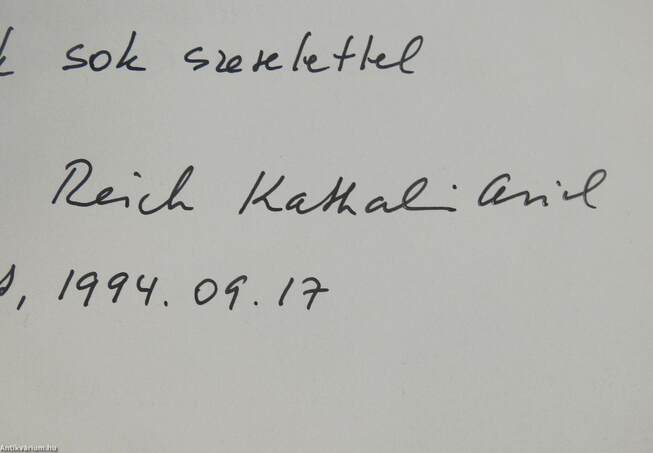 k sok szeretettel
Reich Kathalin Ariel
, 1994. 09. 17
Antikvárium.hu